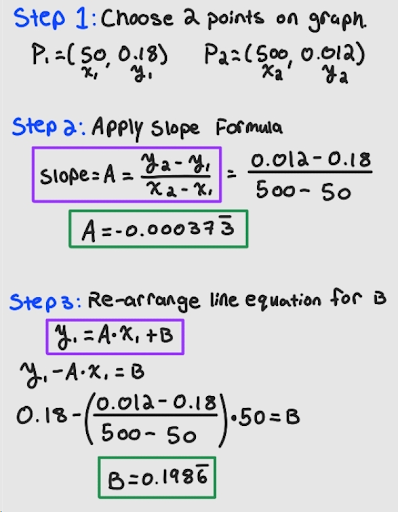 Step 1: Choose 2 points on graph.
P₁=(50, 0.18) P₂=(500, 0.012)
x₁ y₁ x₂ y₂
Step 2: Apply Slope Formula
Slope = A = (y₂ - y₁)/(x₂ - x₁) = (0.012 - 0.18)/(500 - 50)
A = -0.000373̅
Step 3: Re-arrange line equation for B
y₁ = A·x₁ + B
y₁ - A·x₁ = B
0.18 - ((0.012 - 0.18)/(500 - 50))·50 = B
B = 0.1986̅